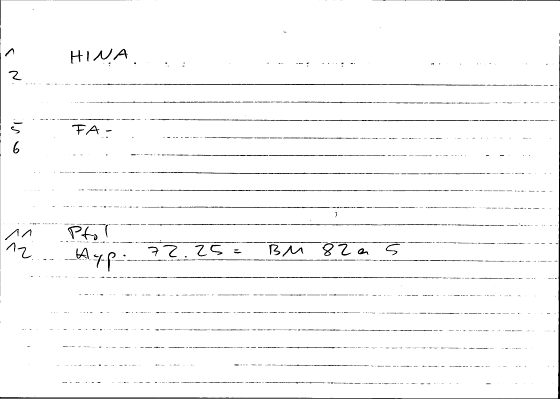 1 HINA.
2
5 FA-
6
11 Ptol
12 Hyp. 72.25 = BM 82a 5